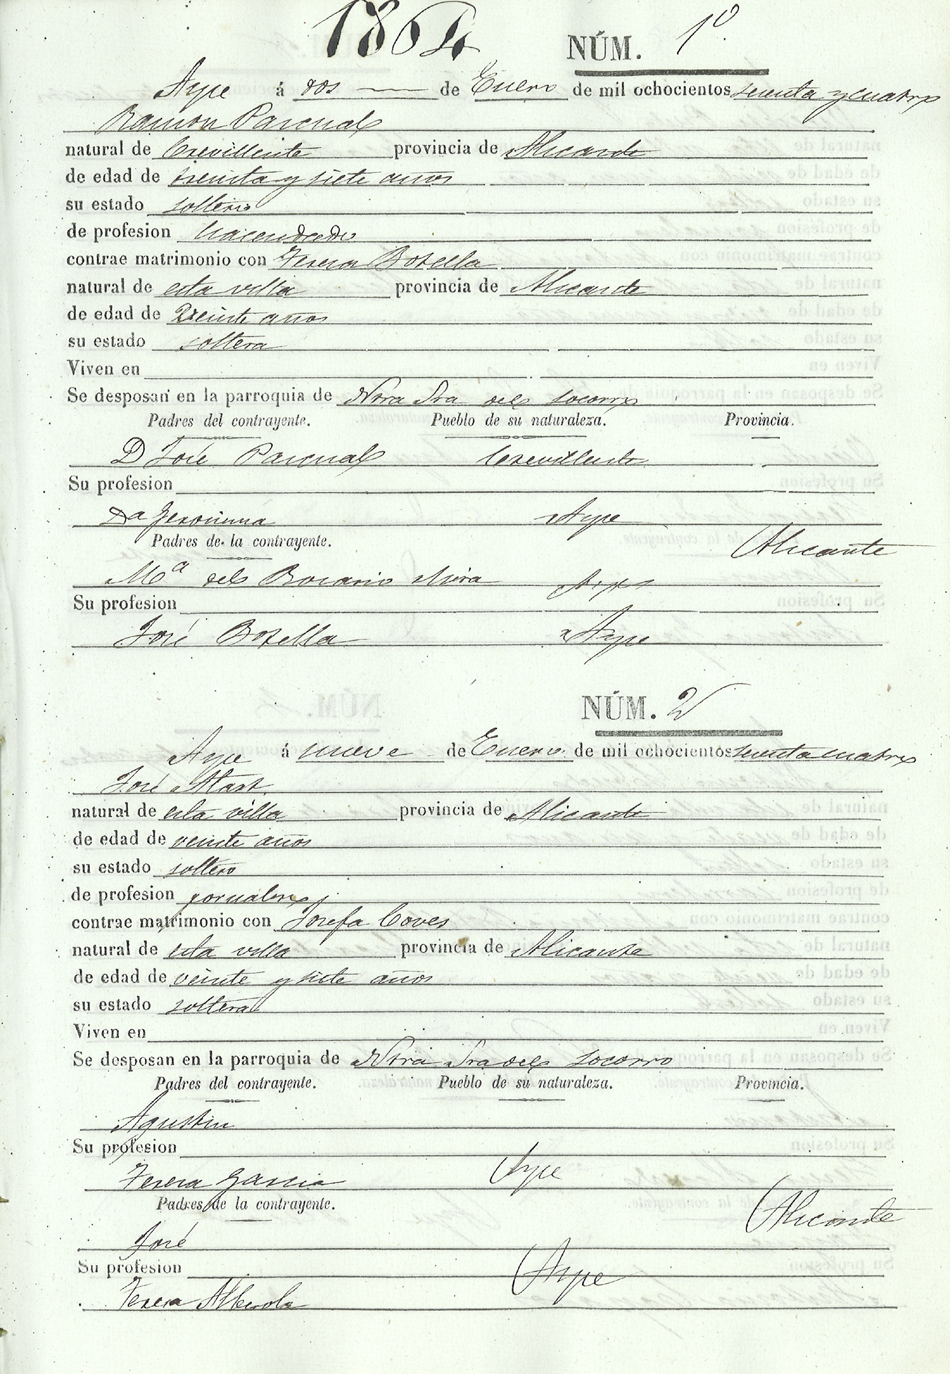 1864 NÚM. 1º
Aspe á dos de Enero de mil ochocientos sesenta y cuatro
Ramon Pascual
natural de Crevillente provincia de Alicante
de edad de treinta y siete años
su estado soltero
de profesion hacendado
contrae matrimonio con Teresa Botella
natural de esta villa provincia de Alicante
de edad de veinte años
su estado soltera
Viven en
Se desposan en la parroquia de Ntra Sra del Socorro
Padres del contrayente. Pueblo de su naturaleza. Provincia.
D José Pascual Crevillente
Su profesion
Da Geronima Aspe
Padres de la contrayente. Alicante
Mª del Rosario Mira Aspe
Su profesion
José Botella Aspe
NÚM. 2
Aspe á nueve de Enero de mil ochocientos sesenta cuatro
José Mart
natural de esta villa provincia de Alicante
de edad de veinte años
su estado soltero
de profesion jornalero
contrae matrimonio con Josefa Coves
natural de esta villa provincia de Alicante
de edad de veinte y siete años
su estado soltera
Viven en
Se desposan en la parroquia de Ntra Sra del Socorro
Padres del contrayente. Pueblo de su naturaleza. Provincia.
Agustin
Su profesion
Teresa Garcia Aspe
Padres de la contrayente. Alicante
José
Su profesion Aspe
Teresa Alberola